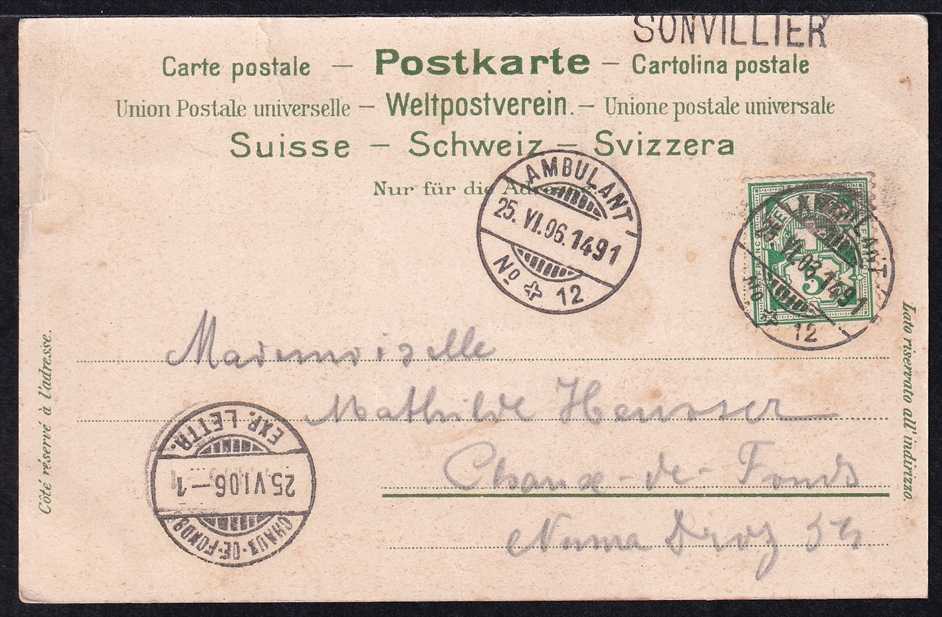 SONVILLIER
Carte postale — Postkarte — Cartolina postale
Union Postale universelle — Weltpostverein. — Unione postale universale
Suisse — Schweiz — Svizzera
Nur für die Adresse
AMBULANT
25. VI. 06. 1491
No 12
AMBULANT
25. VI. 06. 1491
No 12
5
Côté réservé à l'adresse.
Lato riservato all' indirizzo.
Mademoiselle
Mathilde
Chaux-de-Fonds
Numa Droz
EXP. LETTR.
25. VI. 06 — 1
CHAUX-DE-FONDS